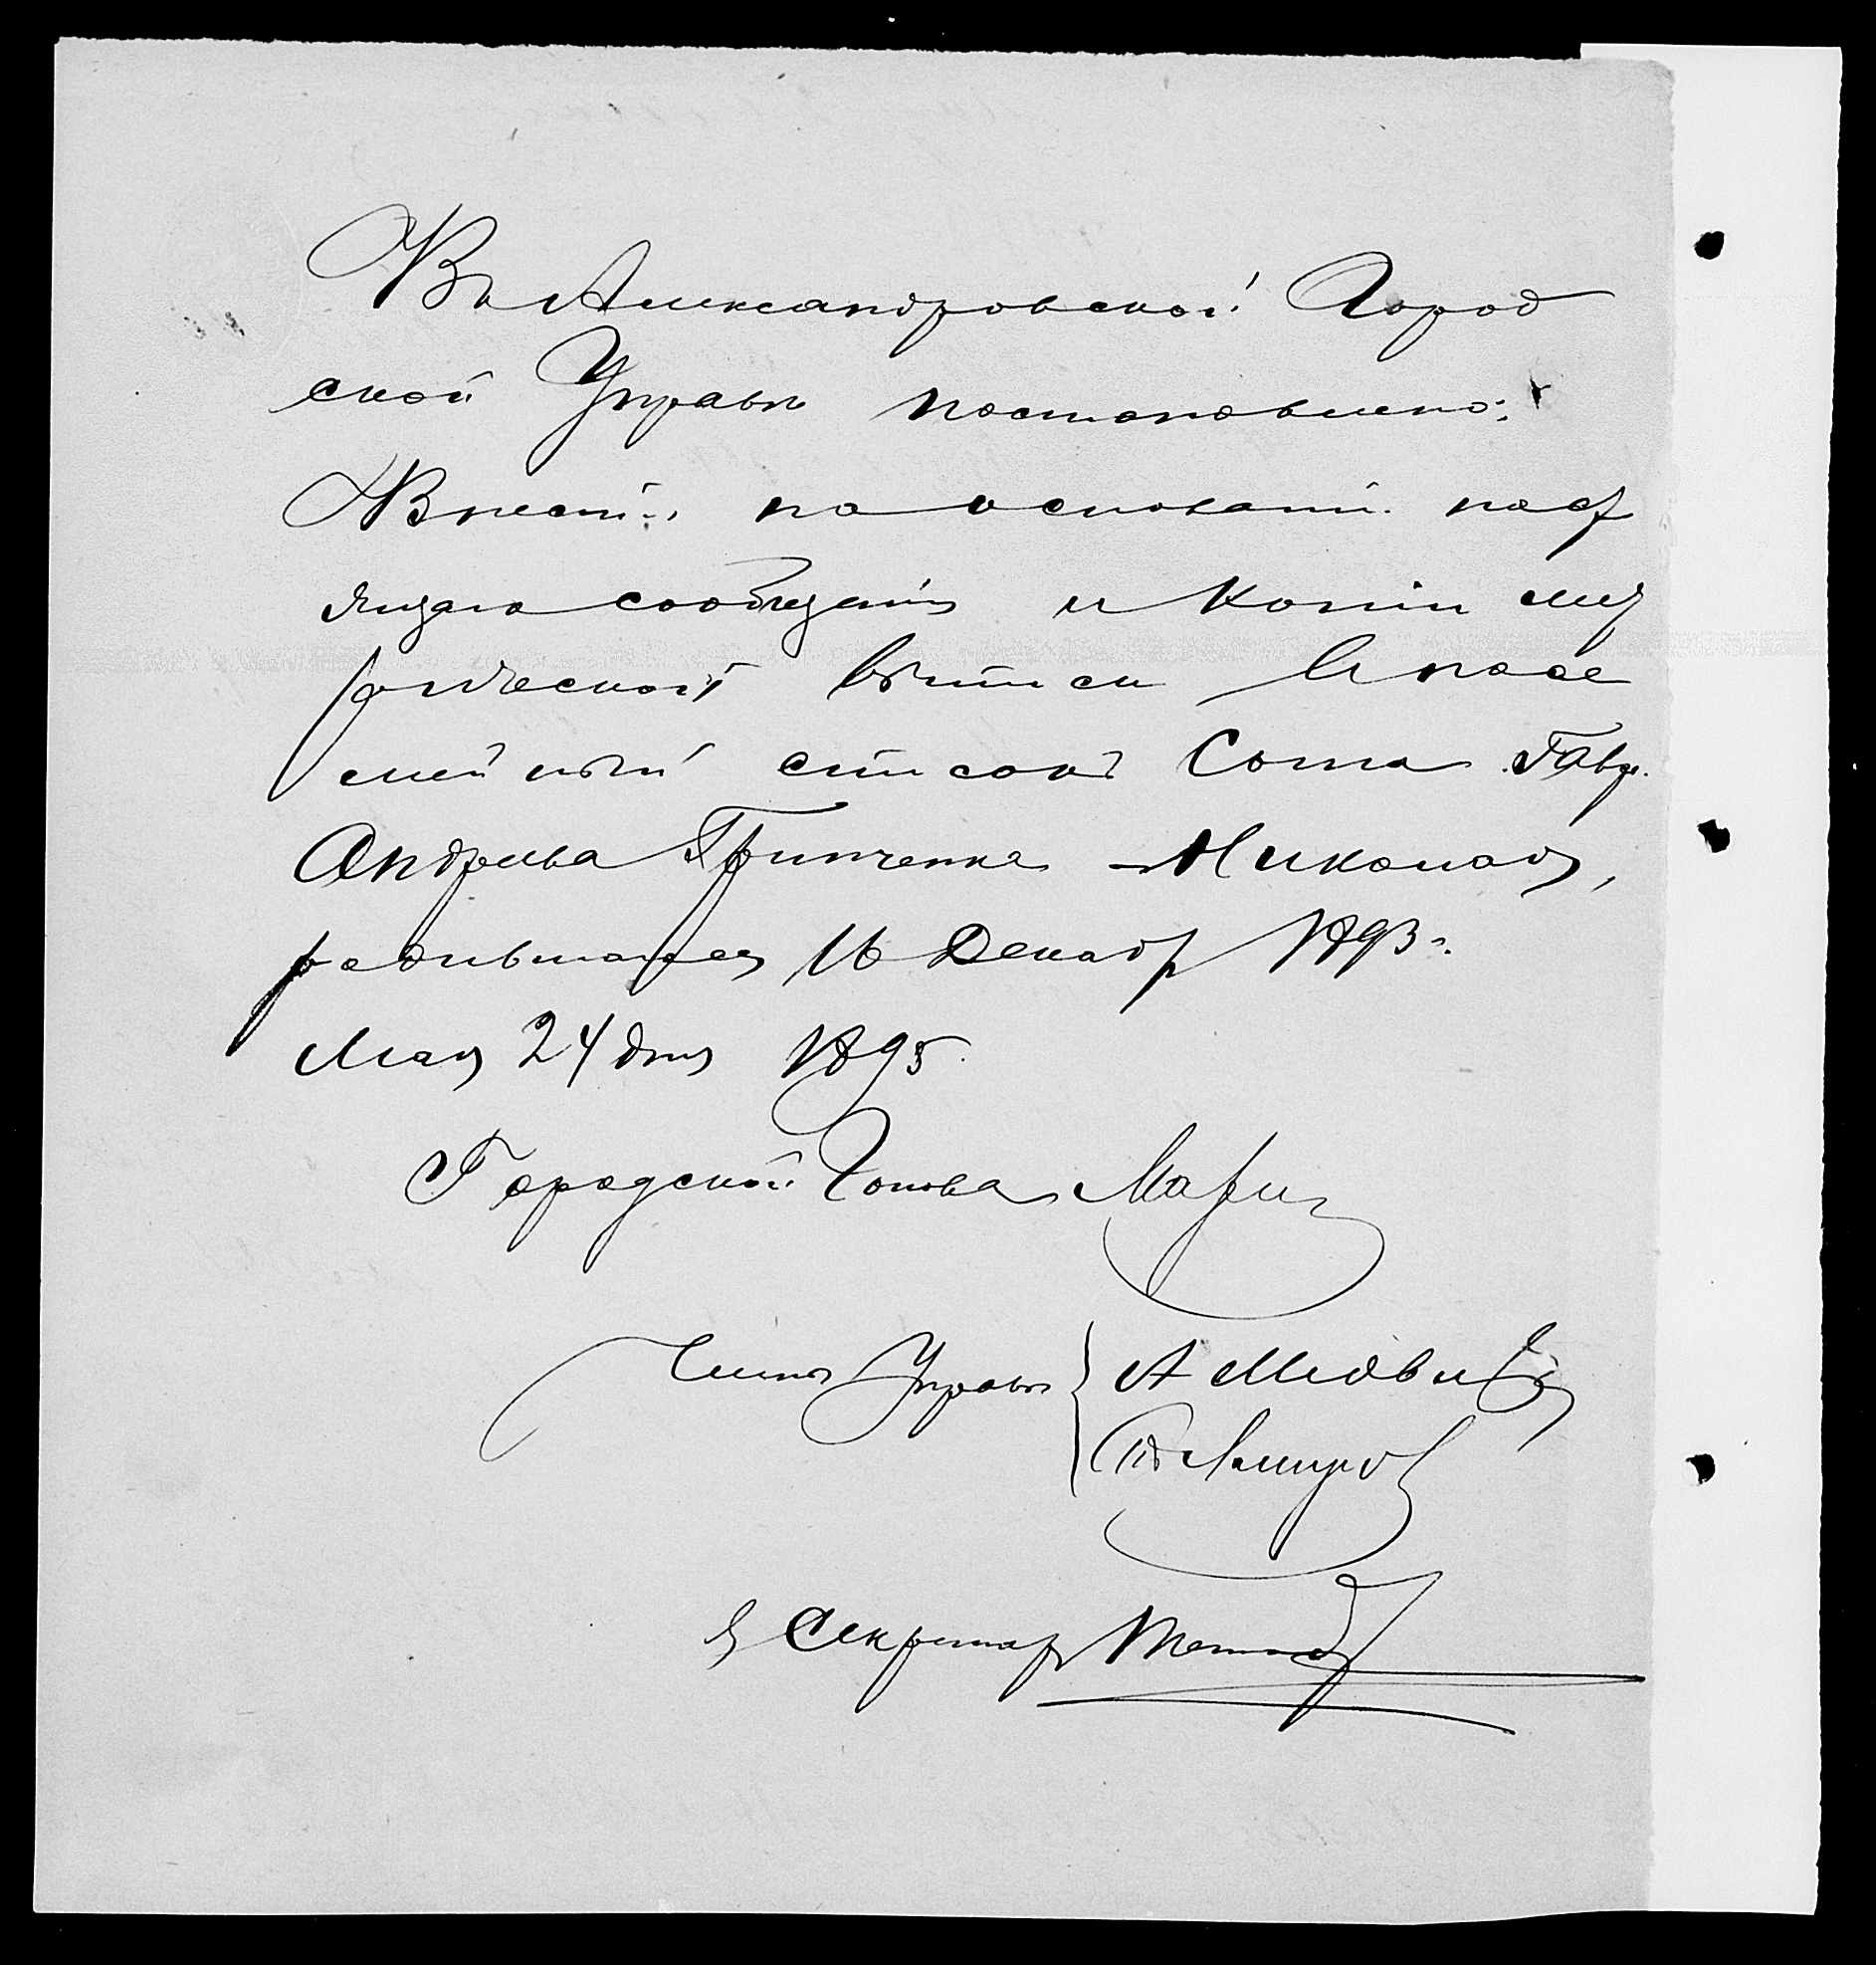 Въ Александровской Город
ской Управѣ постановлено:
Внести на основаніи наст
ящаго сообщенія и копіи мет
рической выписи въ посе
мейный списокъ Сына Гавр.
Андреева Гринченка Николая,
родившагося 16 Декабр 1893 г.
Мая 24 дня 1895
Городской Голова
Члены Управы А Медведев
Секретарь